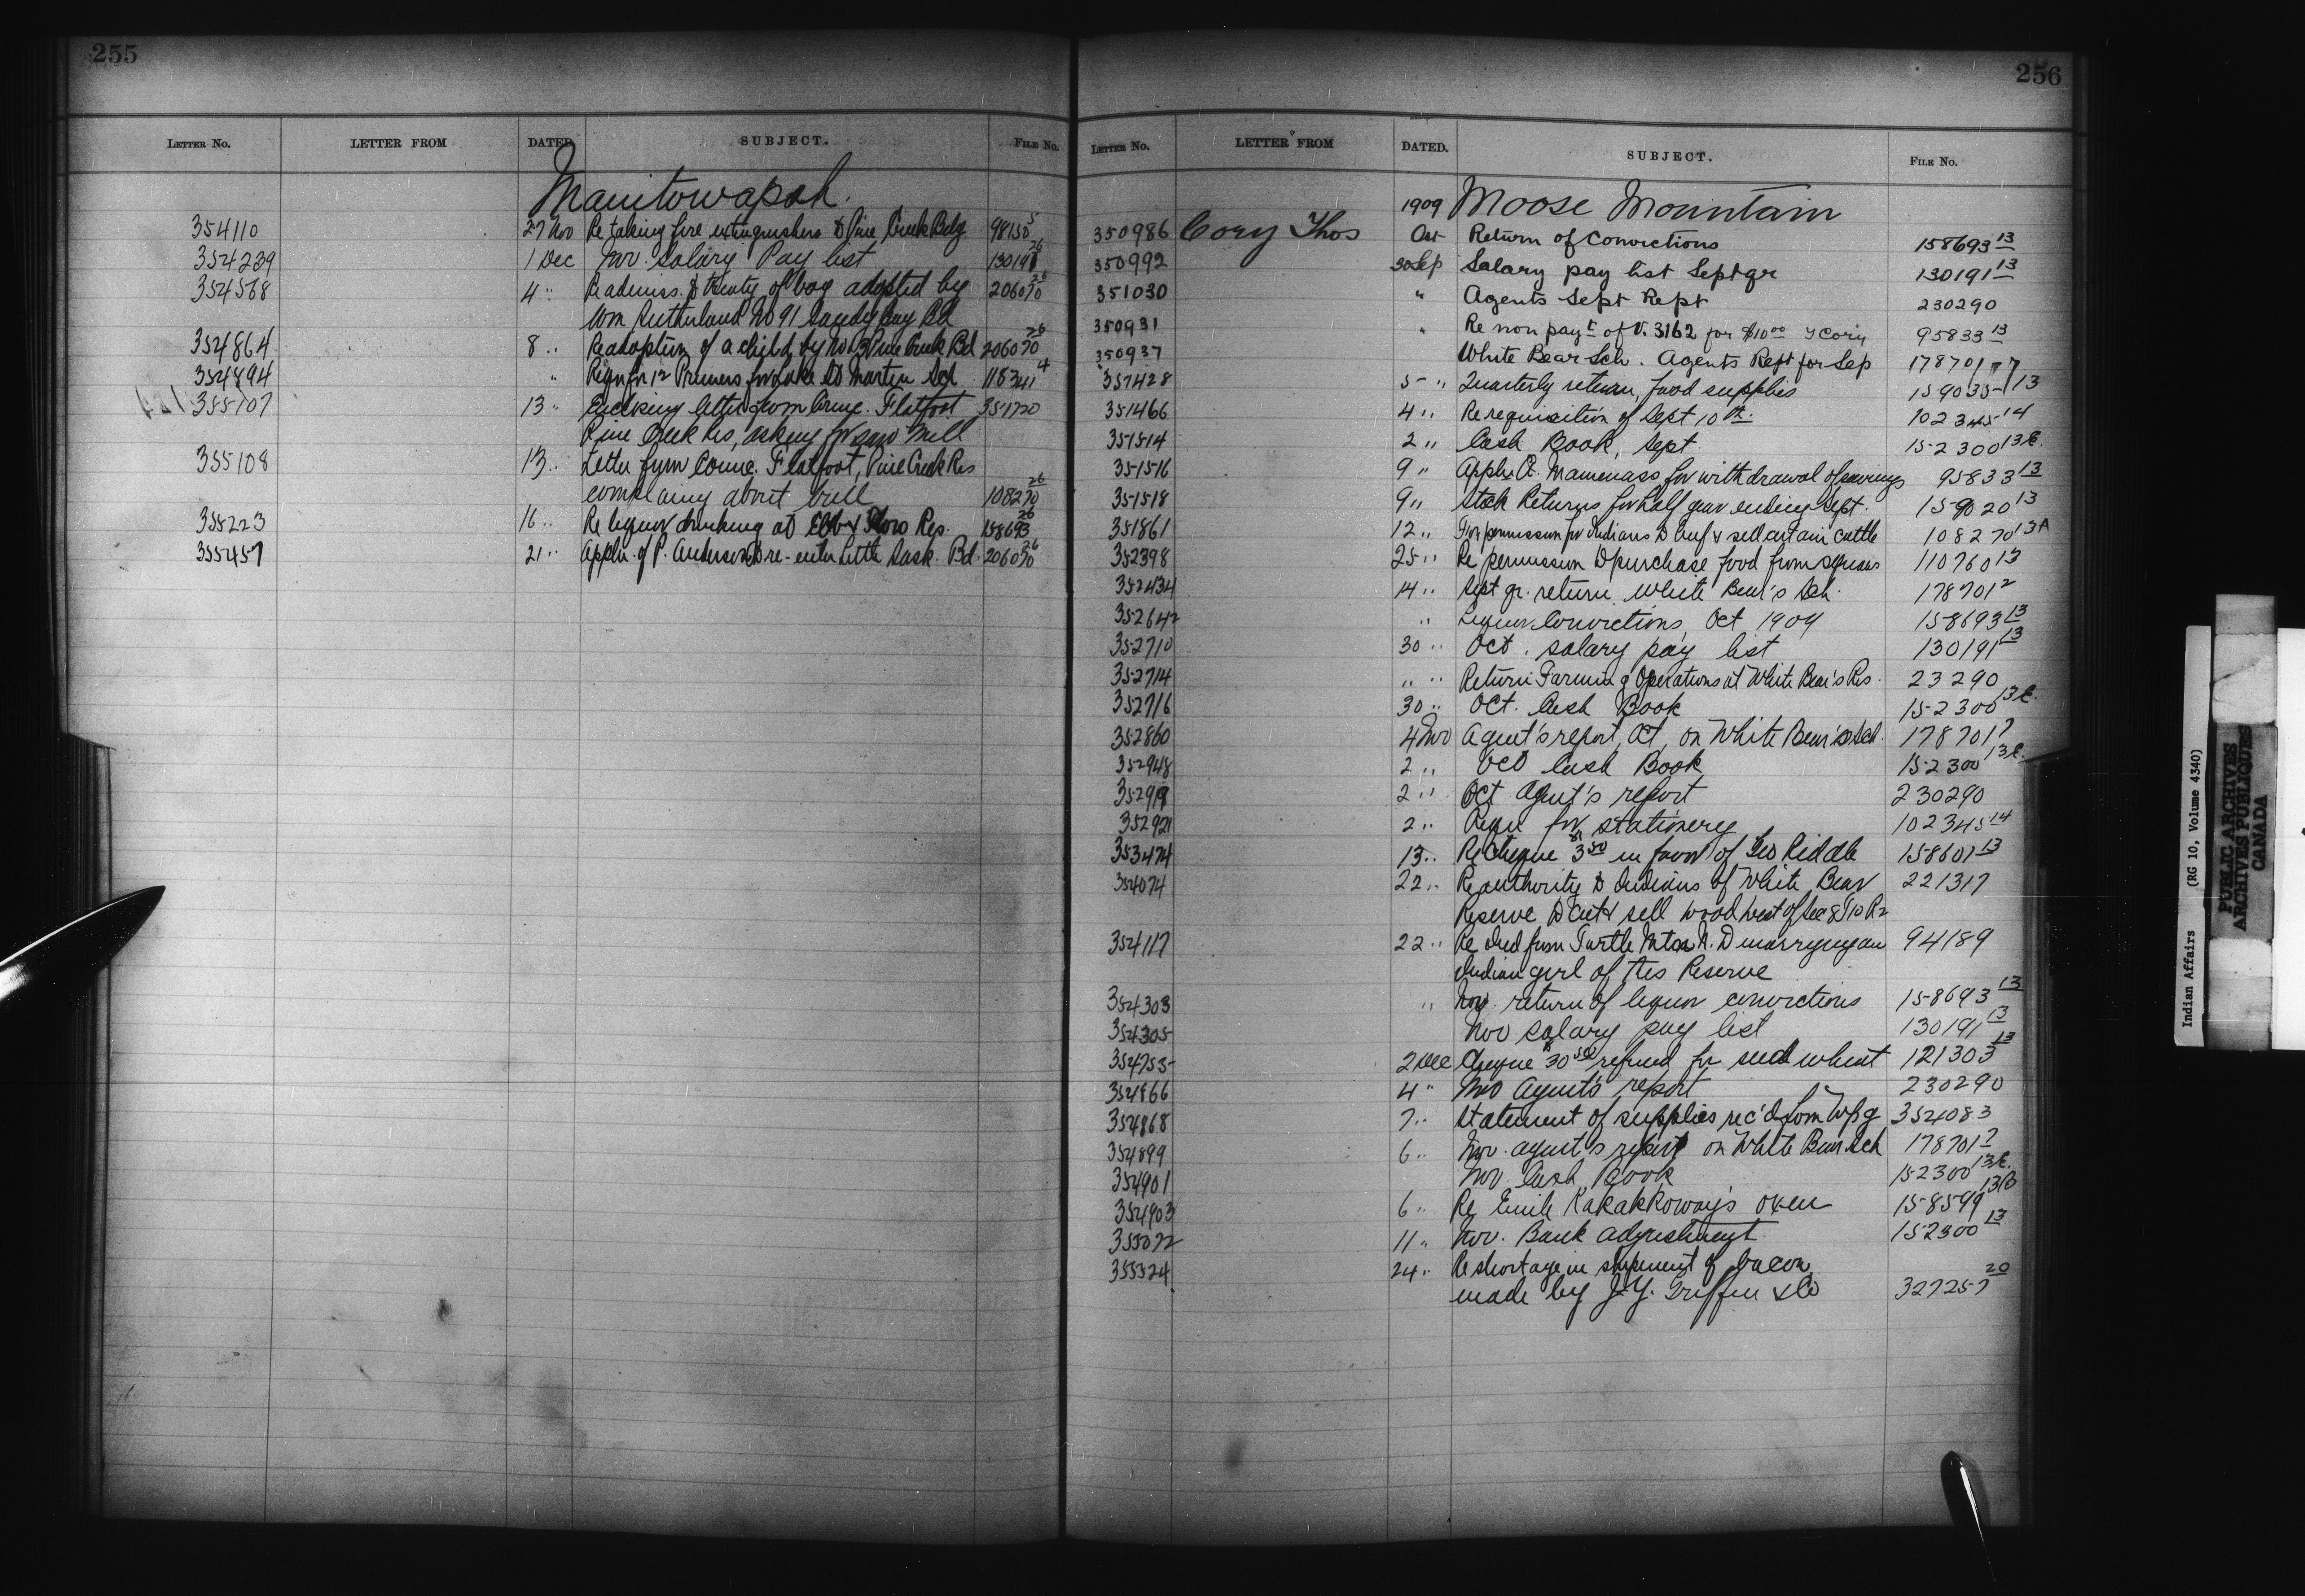 255
LETTER No. LETTER FROM DATED SUBJECT. FILE No.
Manitowapah.
354110 27 Nov Re taking fire extinguishers to Pine Creek Bdg 98150 5
354239 1 Dec Nov. Salary Pay list 130191 26
354568 4 " Re admiss. to treaty of boy adopted by 206070 26
Wm Sutherland No 91 Sandy Bay Bd
354864 8 " Re adoption of a child by No 3 Pine Creek Bd 206070 26
354894 " Reqn for 12 Primers for Lake St Martin Sch 118341 4
355107 13 " Enclosing letter from Counc. Flatfoot 351720
Pine Creek Res, asking for saw mill
355108 13 " Letter from Counc. Flatfoot, Pine Creek Res
complaing about bull 108270 26
355223 16 " Re liquor drinking at Ebb & Flow Res. 158693 26
355457 21 " Appln. of P. Anderson to re-enter Little Sask. Bd. 206070 26
256
LETTER No. LETTER FROM DATED. SUBJECT. FILE No.
1909 Moose Mountain
350986 Cory Thos Oct Return of Convictions 158693 13
350992 30 Sep Salary pay list Sept qr 130191 13
351030 " Agents Sept Rept 230290
350931 " Re non payt of V. 3162 for $10 00 T Cory 95833 13
350937 White Bear Sch. Agents Rept for Sep 178701 7
351428 5 " Quarterly return, food supplies 159035 13
351466 4 " Re requisition of Sept 10th 102345 14
351514 2 " Cash Book, Sept. 152300 13 C.
351516 9 " Appln. Mamenass for withdrawal of savings 95833 13
351518 9 " Stock Returns for half year ending Sept. 159020 13
351861 12 " For permission for Indians to beef & sell certain cattle 108270 13A
352398 25 " Re permission to purchase food from squaws 110760 13
352434 14 " Sept qr. return White Bear's Sch. 178701 2
352642 " Liquor Convictions, Oct 1909 158693 13
352710 30 " Oct. salary pay list 130191 13
352714 " " Return Farming Operations at White Bear's Res. 23290
352716 30 " Oct. Cash Book 152300 13 C.
352860 4 Nov Agent's report, Oct, on White Bear's Sch. 178701 7
352948 2 " Oct Cash Book 152300 13 C.
352919 2 " Oct Agent's report 230290
352921 2 " Reqn for stationery 102345 14
353474 13 " Re Cheque $3 50 in favor of Geo Riddle 158601 13
354074 22 " Re authority to Indians of White Bear 221317
Reserve to cut & sell wood west of Sec 8 T 10 R 2
354117 22 " Re Ind from Turtle Mtn N. D marrying an 94189
Indian girl of this Reserve
354303 " Nov. return of liquor convictions 158693 13
354305 Nov salary pay list 130191 13
354753 2 Dec Cheque $30 50 refund for seed wheat 121303 13
354866 4 " Nov Agent's report 230290
354868 7 " Statement of supplies rec'd from Wpg 354083
354899 6 " Nov. agent's report on White Bear Sch 178701 7
354901 Nov. Cash Book 152300 13 C.
354903 6 " Re Emile Kakakkoway's oxen 158599 13B
355072 11 " Nov. Bank adjustment 152300 13
355524 24 " Re shortage in shipment of bacon
made by J. Y. Griffin & Co 327257 20
Indian Affairs (RG 10, Volume 4340)
PUBLIC ARCHIVES
ARCHIVES PUBLIQUES
CANADA